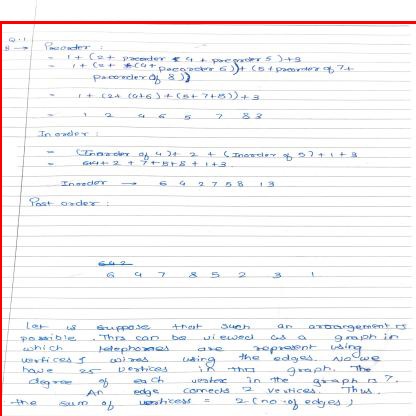 Q.1
B → Preorder :
= 1 + (2 + preorder 4 + preorder 5) + 3
= 1 + (2 + (4 + preorder 6)) + (5 + preorder of 7 +
preorder of 8))
= 1 + (2 + (4+6) + (5+7+8)) + 3
= 1 2 4 6 5 7 8 3
Inorder :
= (Inorder of 4) + 2 + (Inorder of 5) + 1 + 3
= 64 + 2 + 7 + 5 + 8 + 1 + 3
Inorder → 6 4 2 7 5 8 1 3
Post order :
6 4 2
6 4 7 8 5 2 3 1
Let us suppose that such an arrangement is
possible . This can be viewed as a graph in
which telephones are represent using
vertices & wires using the edges. No we
have 25 vertices in this graph. The
degree of each vertex in the graph is 7.
An edge connects 2 vertices Thus.
the sum of vertices = 2 (no. of edges)